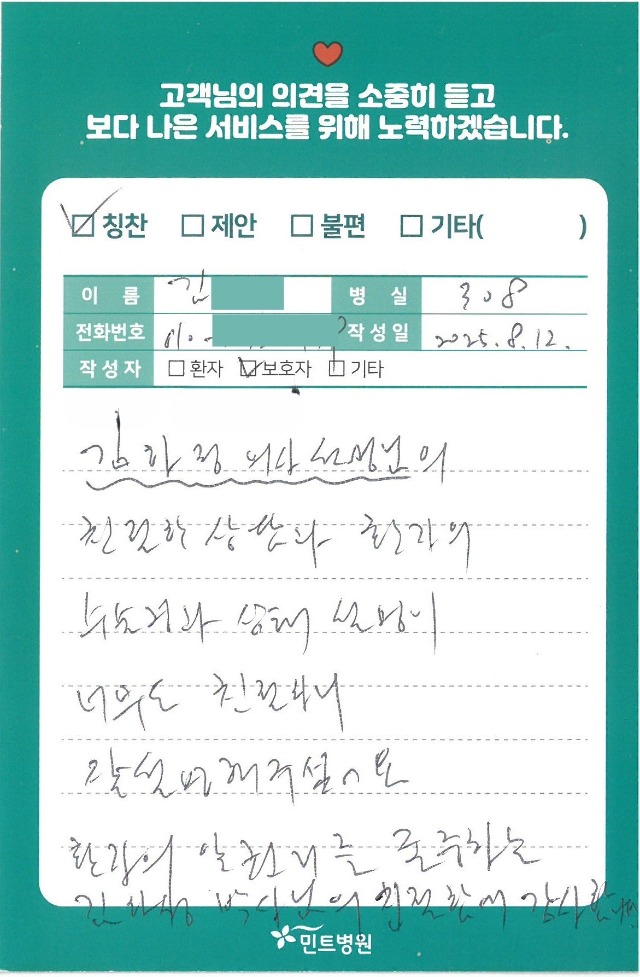 고객님의 의견을 소중히 듣고
보다 나은 서비스를 위해 노력하겠습니다.
칭찬 제안 불편 기타( )
이 름 김 병 실 308
전화번호 010- 작성일 2025.8.12.
작성자 환자 보호자 기타
김하정 선생님의
친절한 상담과 환자의
상태 설명이
너무도 친절하니
잘 설명해주셨어요
환자의 존중하는
김하정 박사님의 친절함에 감사합니다
민트병원